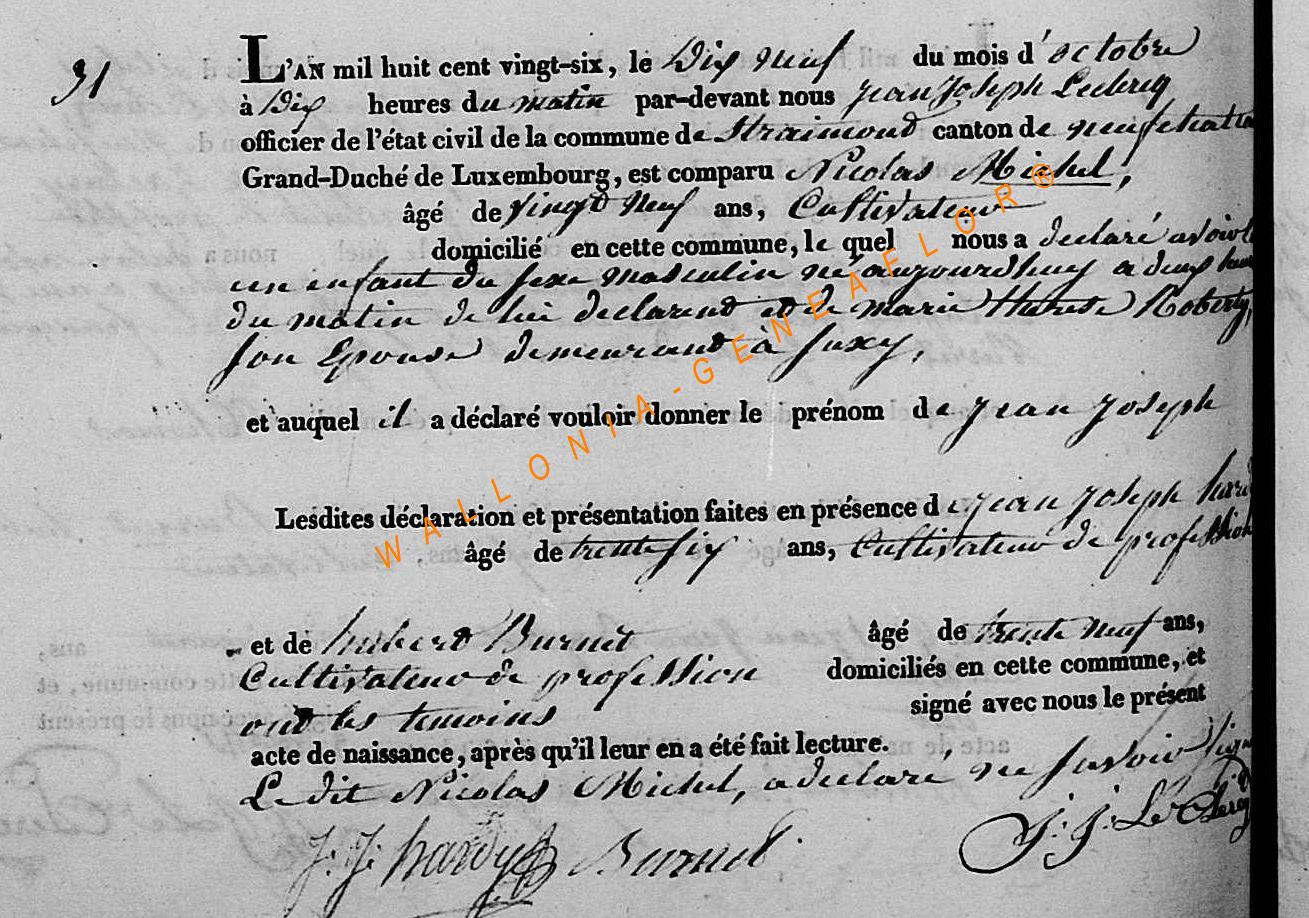 31
L'AN mil huit cent vingt-six, le Dix neuf du mois d'octobre
à Dix heures du matin par-devant nous jean Joseph Leclercq
officier de l'état civil de la commune de Straimond canton de neufchatea
Grand-Duché de Luxembourg, est comparu Nicolas Michel,
âgé de vingt neuf ans, Cultivateur
domicilié en cette commune, le quel nous a declaré avoir
un enfant du sexe masculin né aujourdhuy a deux heur
du matin de lui declarent et de marie therese Roberty,
son Epouse demeurant à suxy,
et auquel il a déclaré vouloir donner le prénom de jean joseph
Lesdites déclaration et présentation faites en présence de jean joseph hard
âgé de trente six ans, Cultivateur de profession
et de hubert Burnet âgé de trente neuf ans,
Cultivateur de profession domiciliés en cette commune, et
ont les temoins signé avec nous le présent
acte de naissance, après qu'il leur en a été fait lecture.
Le dit Nicolas Michel, a declaré ne savoir sign
J. J. hardy Burnet J. J. Le Clercq
WALLONIA-GENEAFLOR®